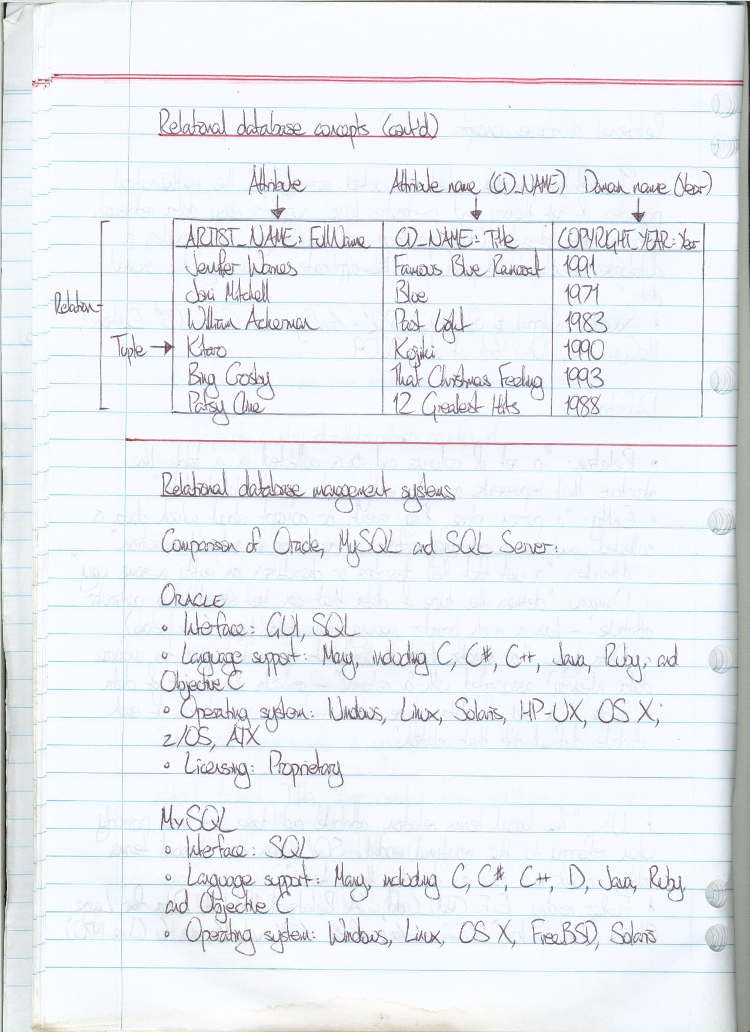 Relational database concepts (cont'd)
Attribute Attribute name (CD_NAME) Domain name (Year)
ARTIST_NAME: FullName CD_NAME: Title COPYRIGHT_YEAR: Year
Jennifer Warnes Famous Blue Raincoat 1991
Joni Mitchell Blue 1971
Relation
William Ackerman Past Light 1983
Tuple Kitaro Kojiki 1990
Bing Crosby That Christmas Feeling 1993
Patsy Cline 12 Greatest Hits 1988
Relational database management systems
Comparison of Oracle, MySQL and SQL Server:
ORACLE
• Interface: GUI, SQL
• Language support: Many, including C, C#, C++, Java, Ruby, and
Objective C
• Operating system: Windows, Linux, Solaris, HP-UX, OS X,
z/OS, AIX
• Licensing: Proprietary
MySQL
• Interface: SQL
• Language support: Many, including C, C#, C++, D, Java, Ruby,
and Objective C
• Operating system: Windows, Linux, OS X, FreeBSD, Solaris